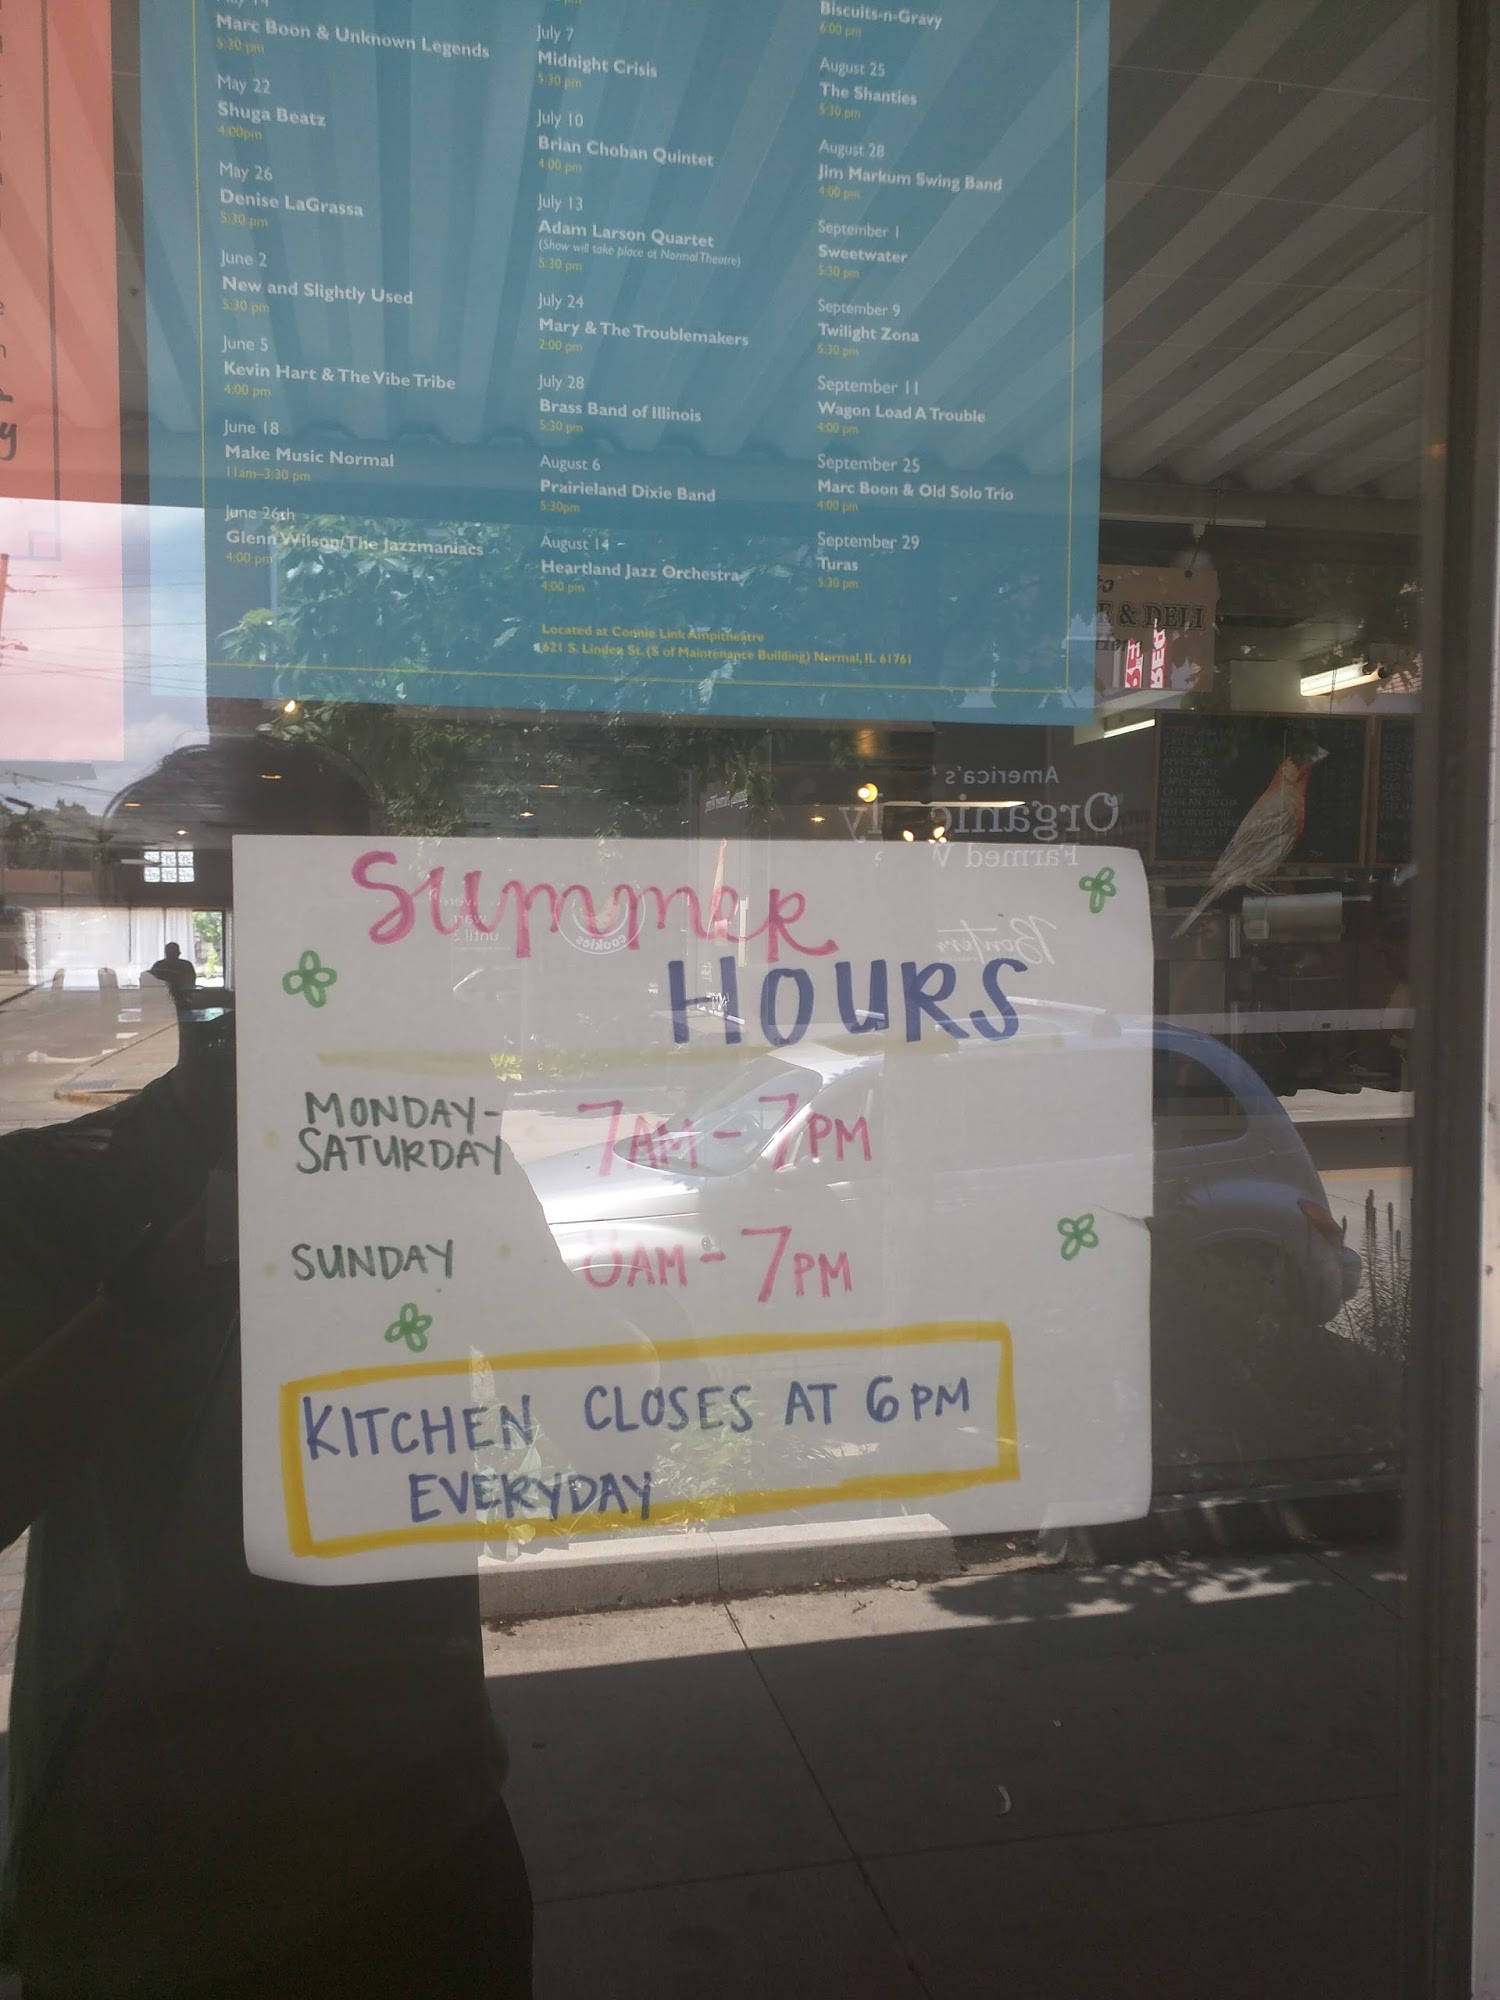 Marc Boon & Unknown Legends
5:30 pm
May 22
Shuga Beatz
4:00pm
May 26
Denise LaGrassa
5:30 pm
June 2
New and Slightly Used
5:30 pm
June 5
Kevin Hart & The Vibe Tribe
4:00 pm
June 18
Make Music Normal
11am–3:30 pm
June 26th
Glenn Wilson/The Jazzmaniacs
4:00 pm
July 7
Midnight Crisis
5:30 pm
July 10
Brian Choban Quintet
4:00 pm
July 13
Adam Larson Quartet
(Show will take place at Normal Theatre)
5:30 pm
July 24
Mary & The Troublemakers
2:00 pm
July 28
Brass Band of Illinois
5:30 pm
August 6
Prairieland Dixie Band
5:30pm
August 14
Heartland Jazz Orchestra
4:00 pm
Biscuits-n-Gravy
6:00 pm
August 25
The Shanties
5:30 pm
August 28
Jim Markum Swing Band
4:00 pm
September 1
Sweetwater
5:30 pm
September 9
Twilight Zona
5:30 pm
September 11
Wagon Load A Trouble
4:00 pm
September 25
Marc Boon & Old Solo Trio
4:00 pm
September 29
Turas
5:30 pm
Located at Connie Link Ampitheatre
621 S. Linden St. (S of Maintenance Building) Normal, IL 61761
& DELI
America's
Organic
Farmed
cookies
SUMMER
HOURS
MONDAY-
SATURDAY 7AM - 7PM
SUNDAY 8AM - 7PM
KITCHEN CLOSES AT 6PM
EVERYDAY